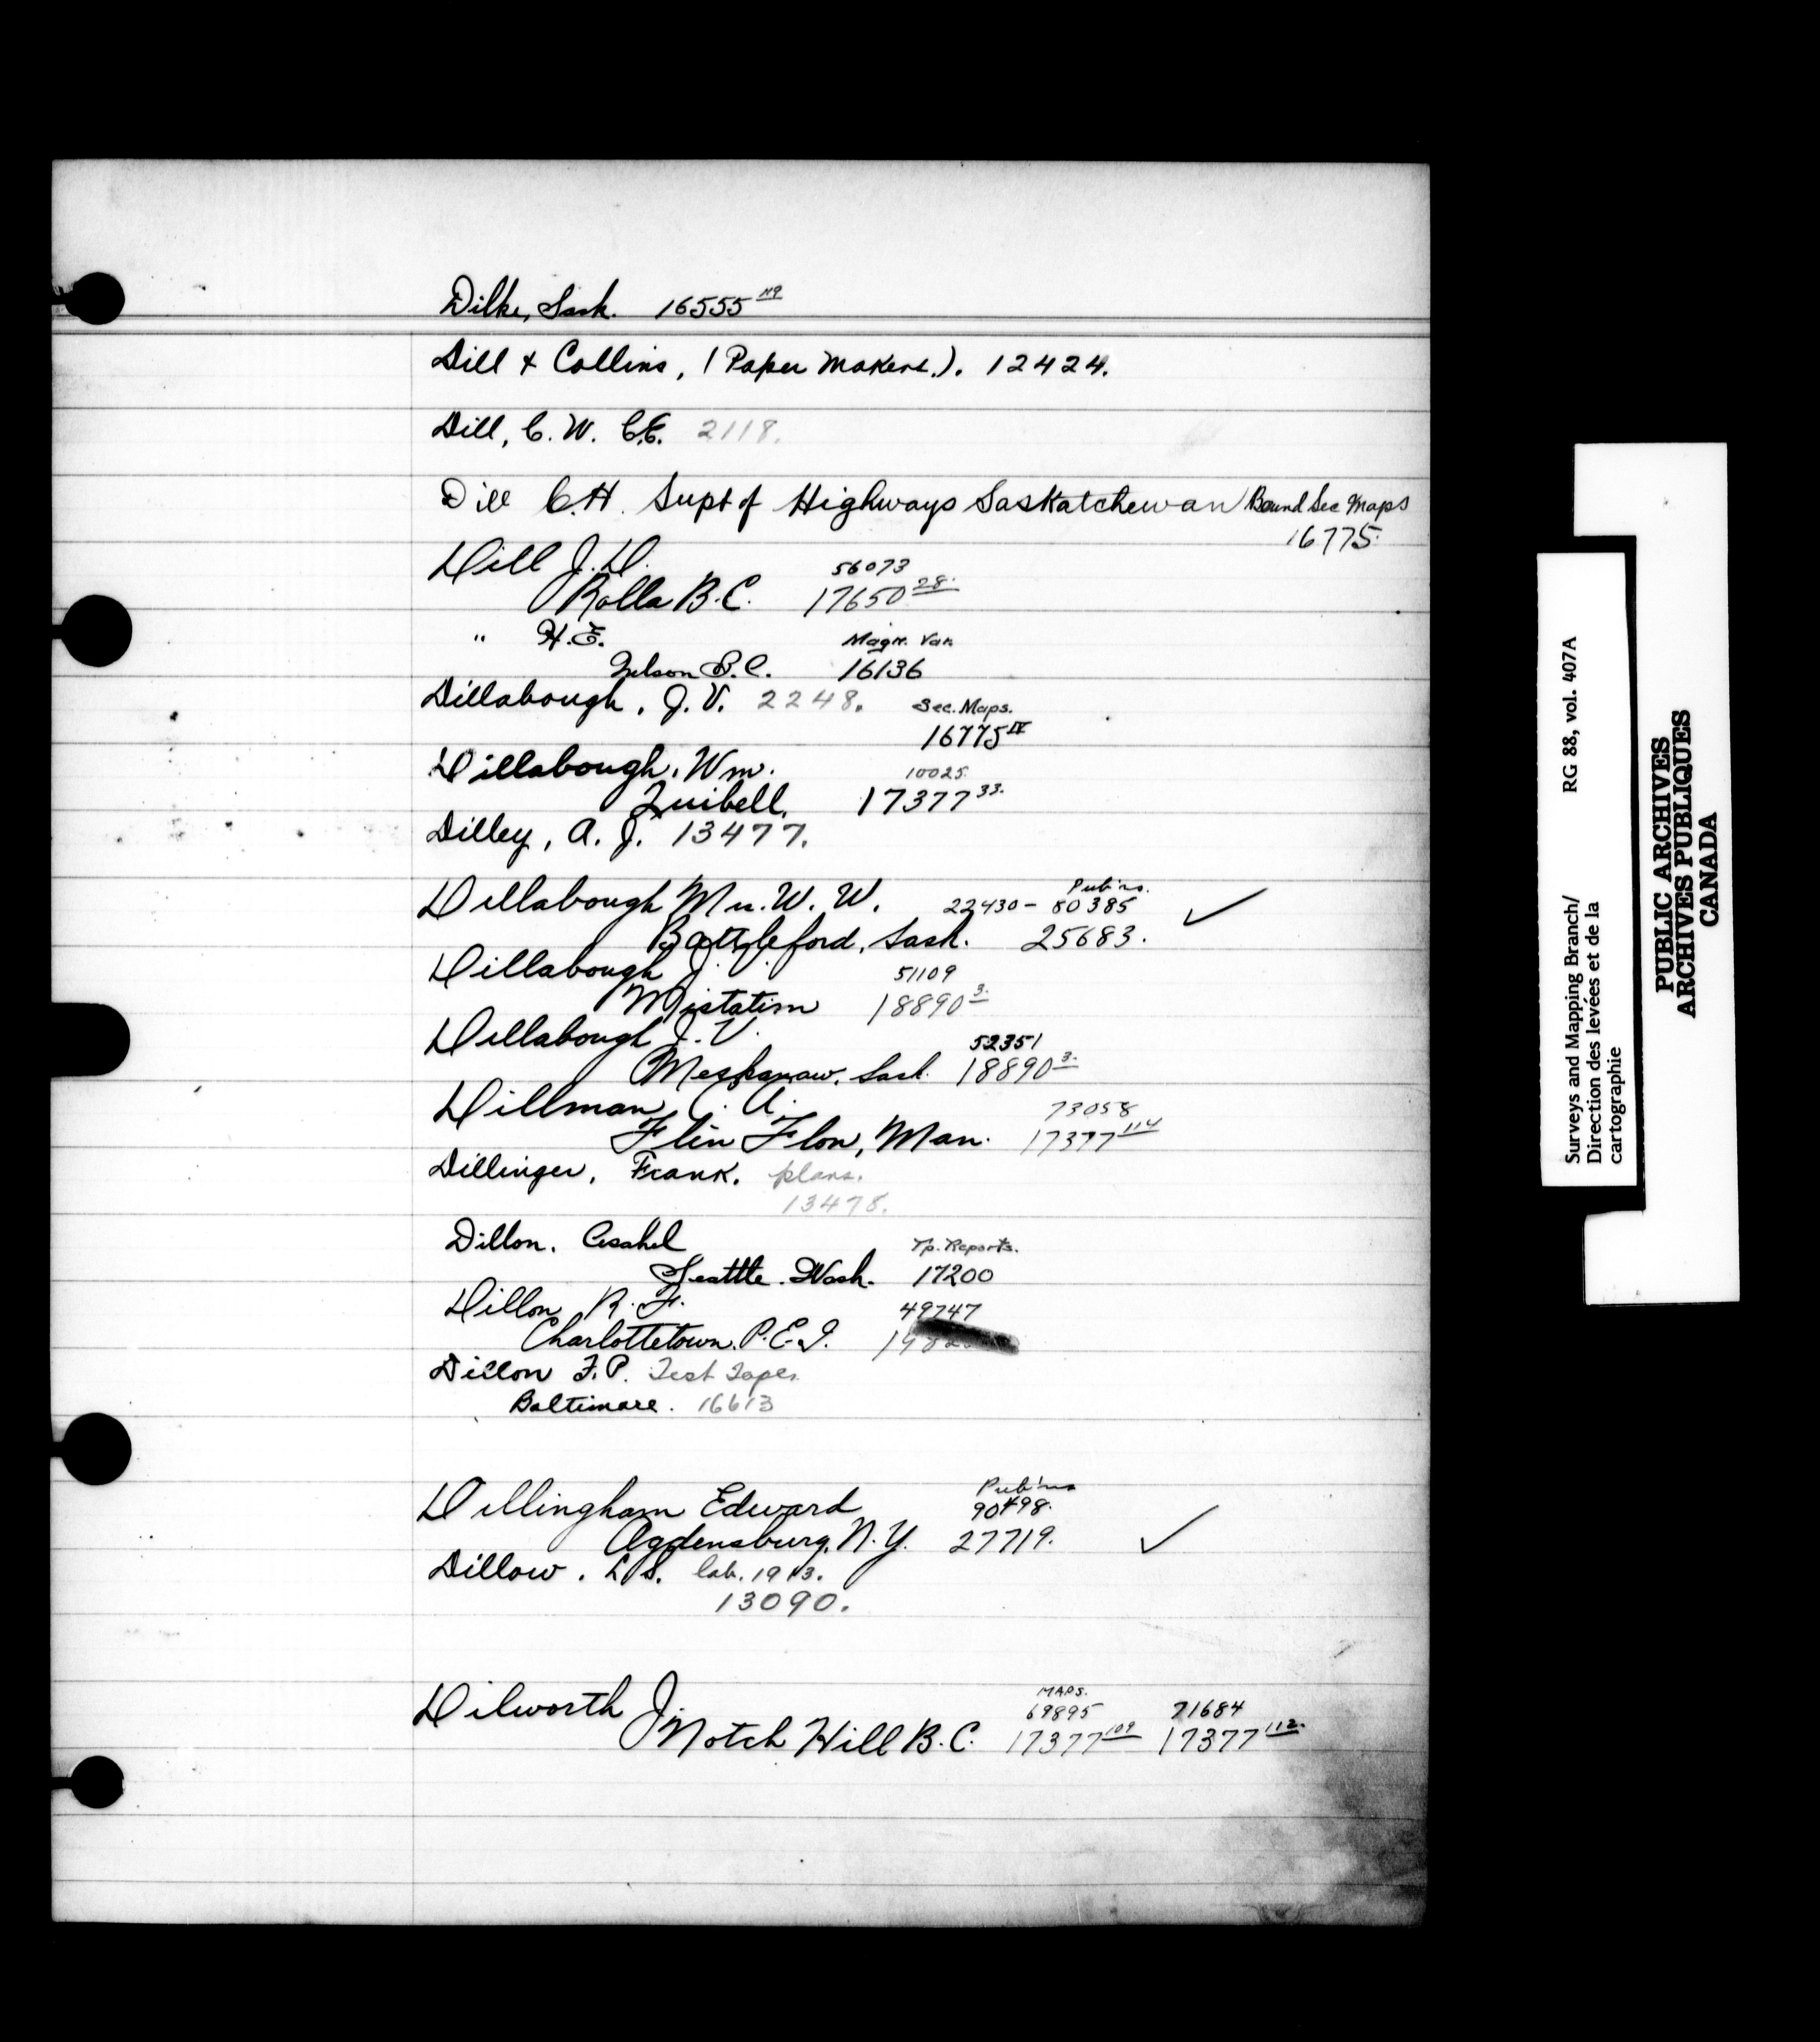 Dilke, Sask. 16555 119
Dill & Collins, (Paper Makers.). 12424.
Dill, C. W. C.E. 2118.
Dill C.H. Supt of Highways Saskatchewan Bound Sec Maps
16775.
Dill J. D. 56073
Rolla B.C. 17650 28.
" H.E. Magn. Var.
Nelson B.C. 16136
Dillabough, J. V. 2248. Sec. Maps.
16775 IV
Dillabough, Wm. 10025
Quibell, 17377 33.
Dilley, A. J. 13477.
Dillabough Mr. W. W. 22430 - 80385 Pub'ns.
Battleford, Sask. 25683.
Dillabough J. V. 51109
Mistatim 18890 3.
Dillabough J. V. 52351
Meskanaw, Sask. 18890 3.
Dillman C. A. 73058
Flin Flon, Man. 17377 114
Dillinger, Frank. plans.
13478.
Dillon, Tp. Reports.
Seattle Wash. 17200
Dillon R. F. 49747
Charlottetown P.E.I.
Dillon F. P. Test Tapes
Baltimore. 16613
Pub'ns
Dillingham Edward 90498.
Ogdensburg, N.Y. 27719.
Dillow, L. S. lab. 1913.
13090.
MAPS.
Dilworth J. 69895 71684
Notch Hill B.C. 17377 109 17377 112.
Surveys and Mapping Branch/ RG 88, vol. 407A
Direction des levées et de la
cartographie
PUBLIC ARCHIVES
ARCHIVES PUBLIQUES
CANADA